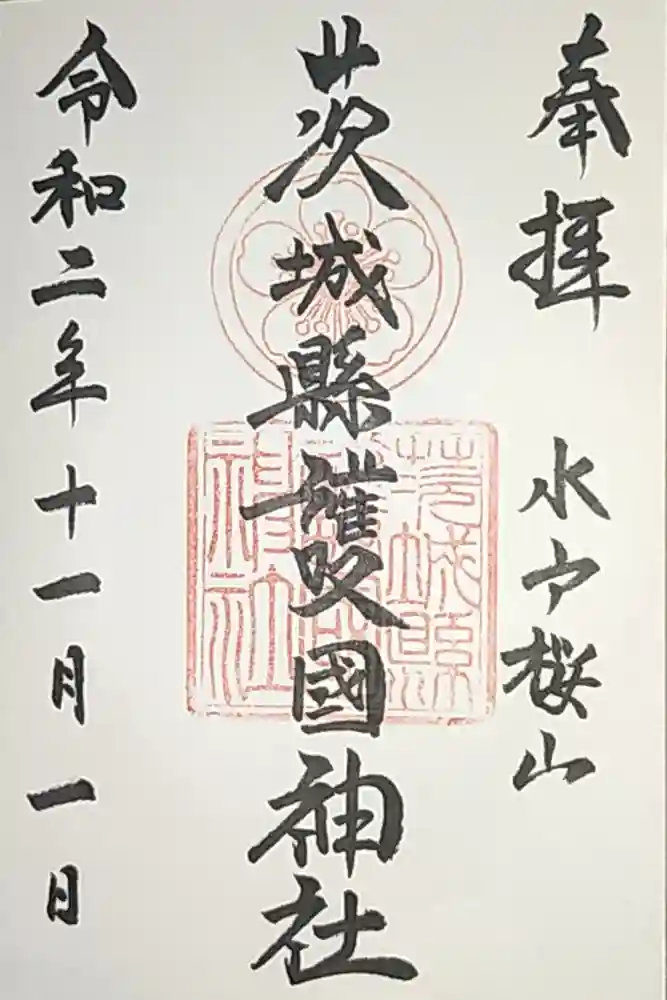 奉拝 水戸桜山
茨城縣護國神社
令和二年十一月一日
茨城縣
護國
神社